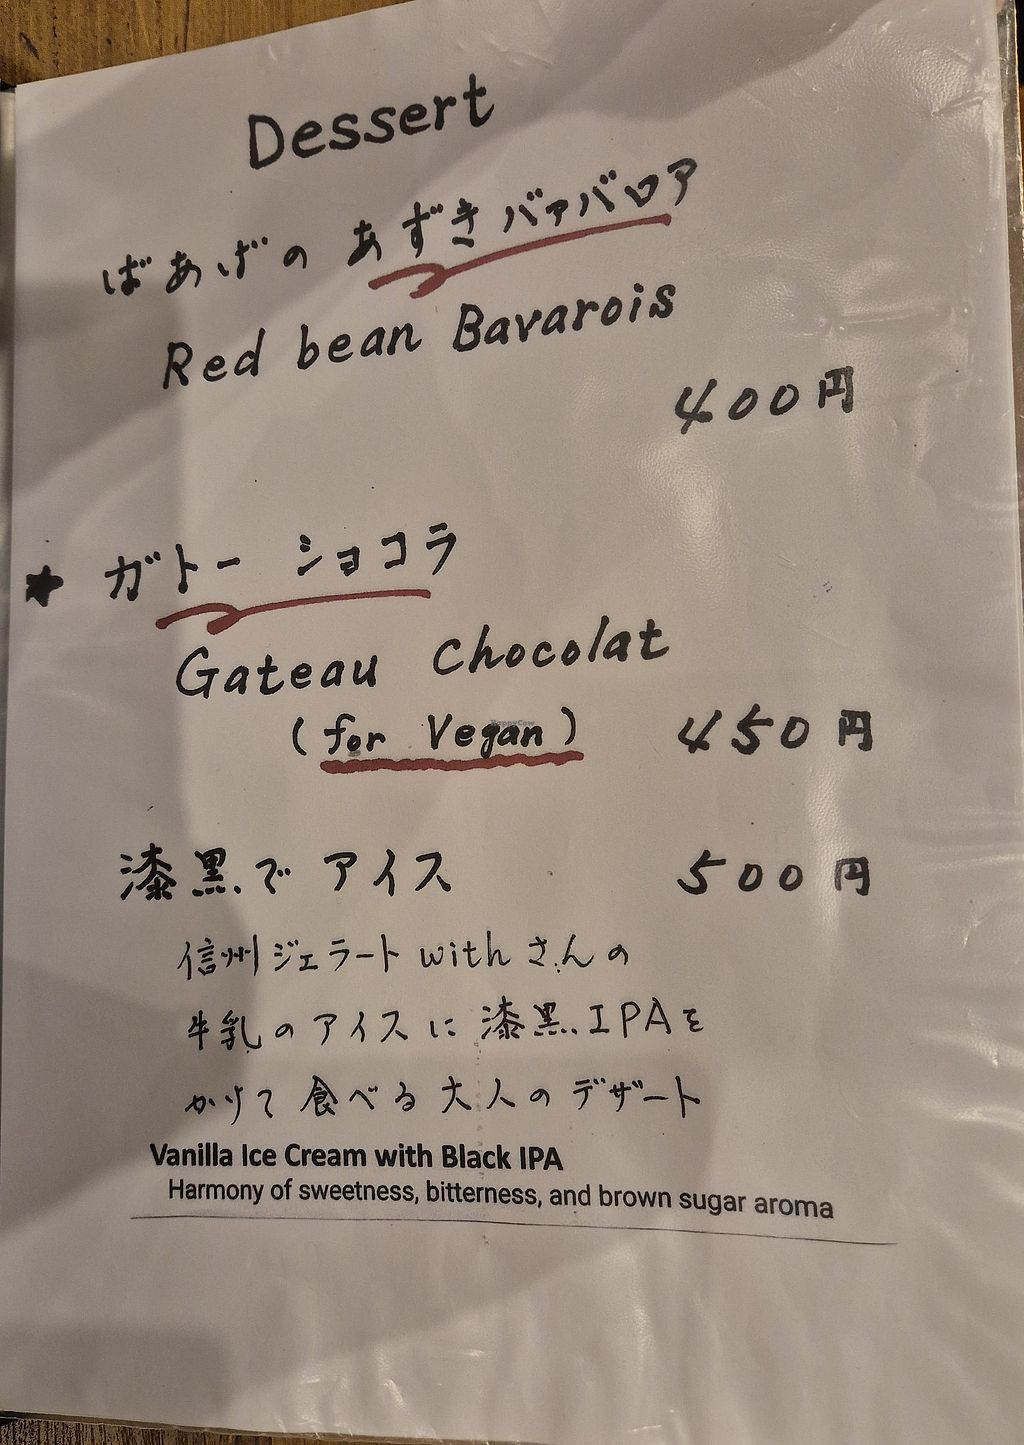 Dessert
ばあばの あずきババロア
Red bean Bavarois
400円
★ ガトー ショコラ
Gateau Chocolat
(for Vegan) 450円
漆黒でアイス 500円
信州ジェラート withさんの
牛乳のアイスに漆黒IPAを
かけて食べる大人のデザート
Vanilla Ice Cream with Black IPA
Harmony of sweetness, bitterness, and brown sugar aroma
HappyCow